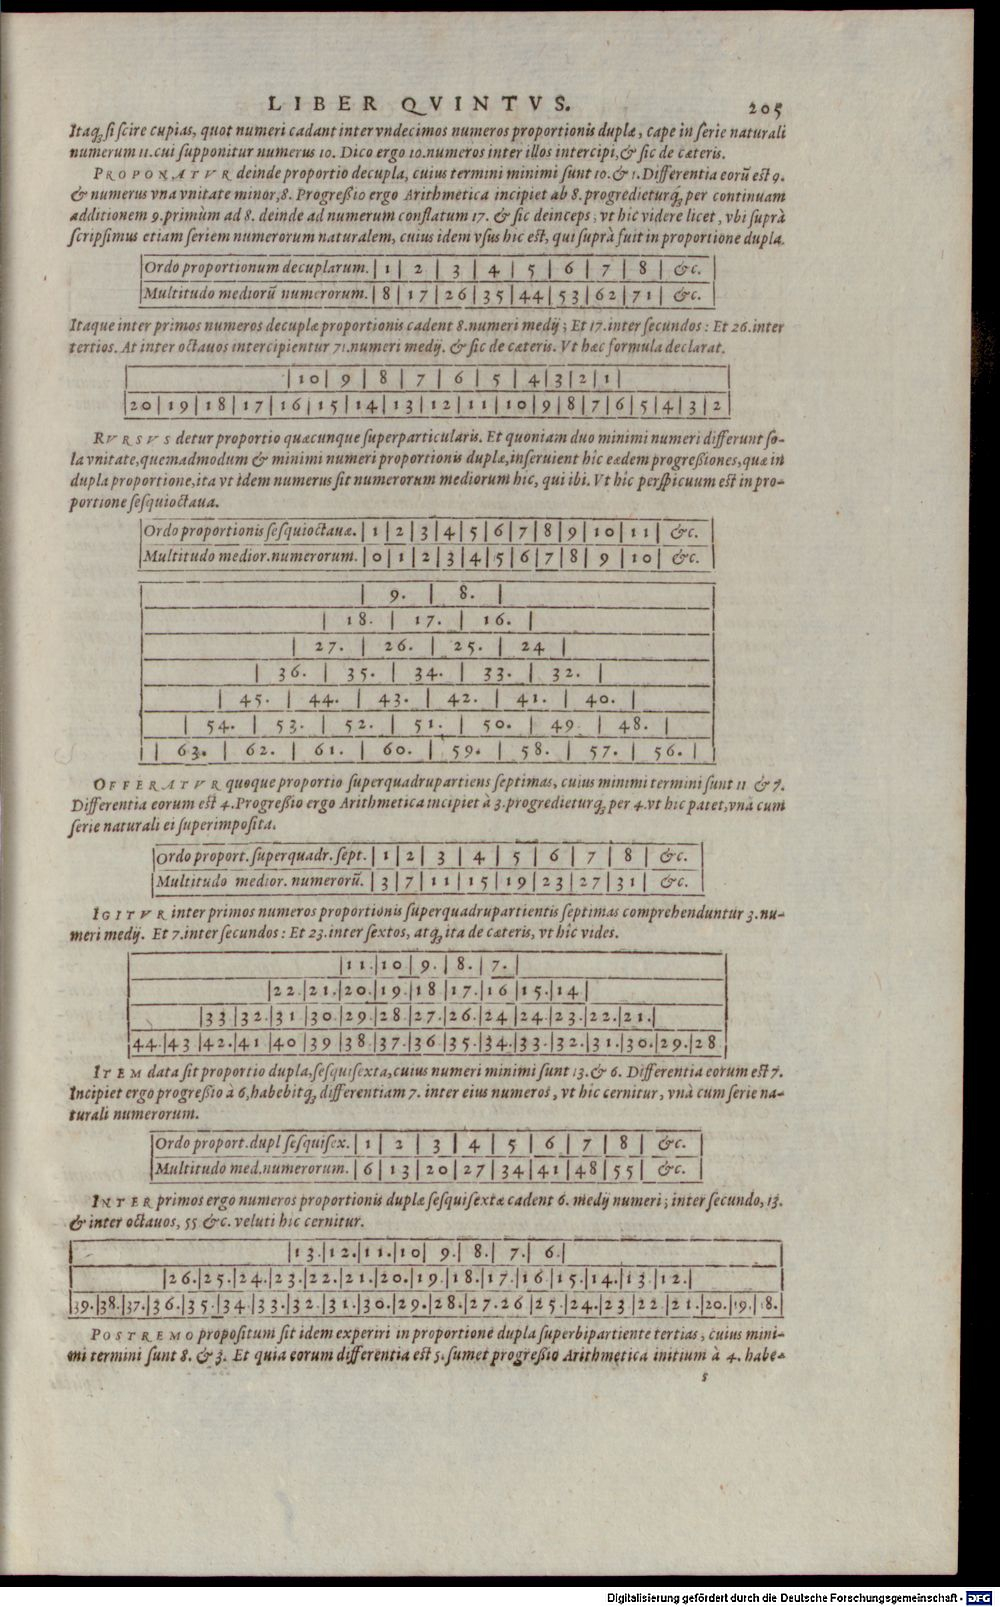 LIBER QVINTVS. 205
Itaq; si scire cupias, quot numeri cadant inter vndecimos numeros proportionis duplæ, cape in serie naturali
numerum 11. cui supponitur numerus 10. Dico ergo 10. numeros inter illos intercipi, & sic de cæteris.
PROPONATVR deinde proportio decupla, cuius termini minimi sunt 10. & 1. Differentia eorũ est 9.
& numerus vna vnitate minor, 8. Progreßio ergo Arithmetica incipiet ab 8. progredieturq; per continuam
additionem 9. primùm ad 8. deinde ad numerum conflatum 17. & sic deinceps; vt hic videre licet, vbi suprà
scripsimus etiam seriem numerorum naturalem, cuius idem vsus hic est, qui suprà fuit in proportione dupla.
Ordo proportionum decuplarum. | 1 | 2 | 3 | 4 | 5 | 6 | 7 | 8 | &c.
Multitudo mediorũ numerorum. | 8 | 17 | 26 | 35 | 44 | 53 | 62 | 71 | &c.
Itaque inter primos numeros decuplæ proportionis cadent 8. numeri medij; Et 17. inter secundos: Et 26. inter
tertios. At inter octauos intercipientur 71. numeri medij. & sic de cæteris. Vt hæc formula declarat.
| 10 | 9 | 8 | 7 | 6 | 5 | 4 | 3 | 2 | 1 |
| 20 | 19 | 18 | 17 | 16 | 15 | 14 | 13 | 12 | 11 | 10 | 9 | 8 | 7 | 6 | 5 | 4 | 3 | 2
RVRSVS detur proportio quæcunque superparticularis. Et quoniam duo minimi numeri differunt so-
la vnitate, quemadmodum & minimi numeri proportionis duplæ, inseruient hic eædem progreßiones, quæ in
dupla proportione, ita vt idem numerus sit numerorum mediorum hic, qui ibi. Vt hic perspicuum est in pro-
portione sesquioctaua.
Ordo proportionis sesquioctauæ. | 1 | 2 | 3 | 4 | 5 | 6 | 7 | 8 | 9 | 10 | 11 | &c.
Multitudo medior. numerorum. | 0 | 1 | 2 | 3 | 4 | 5 | 6 | 7 | 8 | 9 | 10 | &c.
| 9. | 8. |
| 18. | 17. | 16. |
| 27. | 26. | 25. | 24 |
| 36. | 35. | 34. | 33. | 32. |
| 45. | 44. | 43. | 42. | 41. | 40. |
| 54. | 53. | 52. | 51. | 50. | 49 | 48. |
| 63. | 62. | 61. | 60. | 59. | 58. | 57. | 56. |
OFFERATVR quoque proportio superquadrupartiens septimas, cuius minimi termini sunt 11 & 7.
Differentia eorum est 4. Progreßio ergo Arithmetica incipiet à 3. progredieturq; per 4. vt hic patet, vnà cum
serie naturali ei superimposita.
Ordo proport. superquadr. sept. | 1 | 2 | 3 | 4 | 5 | 6 | 7 | 8 | &c.
Multitudo medior. numerorũ. | 3 | 7 | 11 | 15 | 19 | 23 | 27 | 31 | &c.
IGITVR inter primos numeros proportionis superquadrupartientis septimas comprehenduntur 3. nu-
meri medij. Et 7. inter secundos: Et 23. inter sextos, atq; ita de cæteris, vt hic vides.
| 11. | 10 | 9. | 8. | 7. |
| 22. | 21. | 20. | 19. | 18 | 17. | 16 | 15. | 14 |
| 33 | 32. | 31 | 30. | 29. | 28 | 27. | 26. | 24 | 24. | 23. | 22. | 21. |
44. | 43 | 42. | 41 | 40 | 39 | 38. | 37. | 36 | 35. | 34. | 33. | 32. | 31. | 30. | 29. | 28
ITEM data sit proportio dupla, sesquisexta, cuius numeri minimi sunt 13. & 6. Differentia eorum est 7.
Incipiet ergo progreßio à 6, habebitq; differentiam 7. inter eius numeros, vt hic cernitur, vnà cum serie na-
turali numerorum.
Ordo proport. dupl sesquisex. | 1 | 2 | 3 | 4 | 5 | 6 | 7 | 8 | &c.
Multitudo med. numerorum. | 6 | 13 | 20 | 27 | 34 | 41 | 48 | 55 | &c.
INTER primos ergo numeros proportionis duplæ sesquisextæ cadent 6. medij numeri; inter secundo, 13.
& inter octauos, 55 &c. veluti hic cernitur.
| 13. | 12. | 11. | 10 | 9. | 8. | 7. | 6. |
| 26. | 25. | 24. | 23. | 22. | 21. | 20. | 19. | 18. | 17. | 16 | 15. | 14. | 13. | 12. |
39. | 38. | 37. | 36. | 35. | 34. | 33. | 32. | 31. | 30. | 29. | 28. | 27. 26 | 25. | 24. | 23 | 22. | 21. | 20. | 19. | 18. |
POSTREMO propositum sit idem experiri in proportione dupla superbipartiente tertias, cuius mini-
mi termini sunt 8. & 3. Et quia eorum differentia est 5. sumet progreßio Arithmetica initium à 4. habe-
s
Digitalisierung gefördert durch die Deutsche Forschungsgemeinschaft - DFG